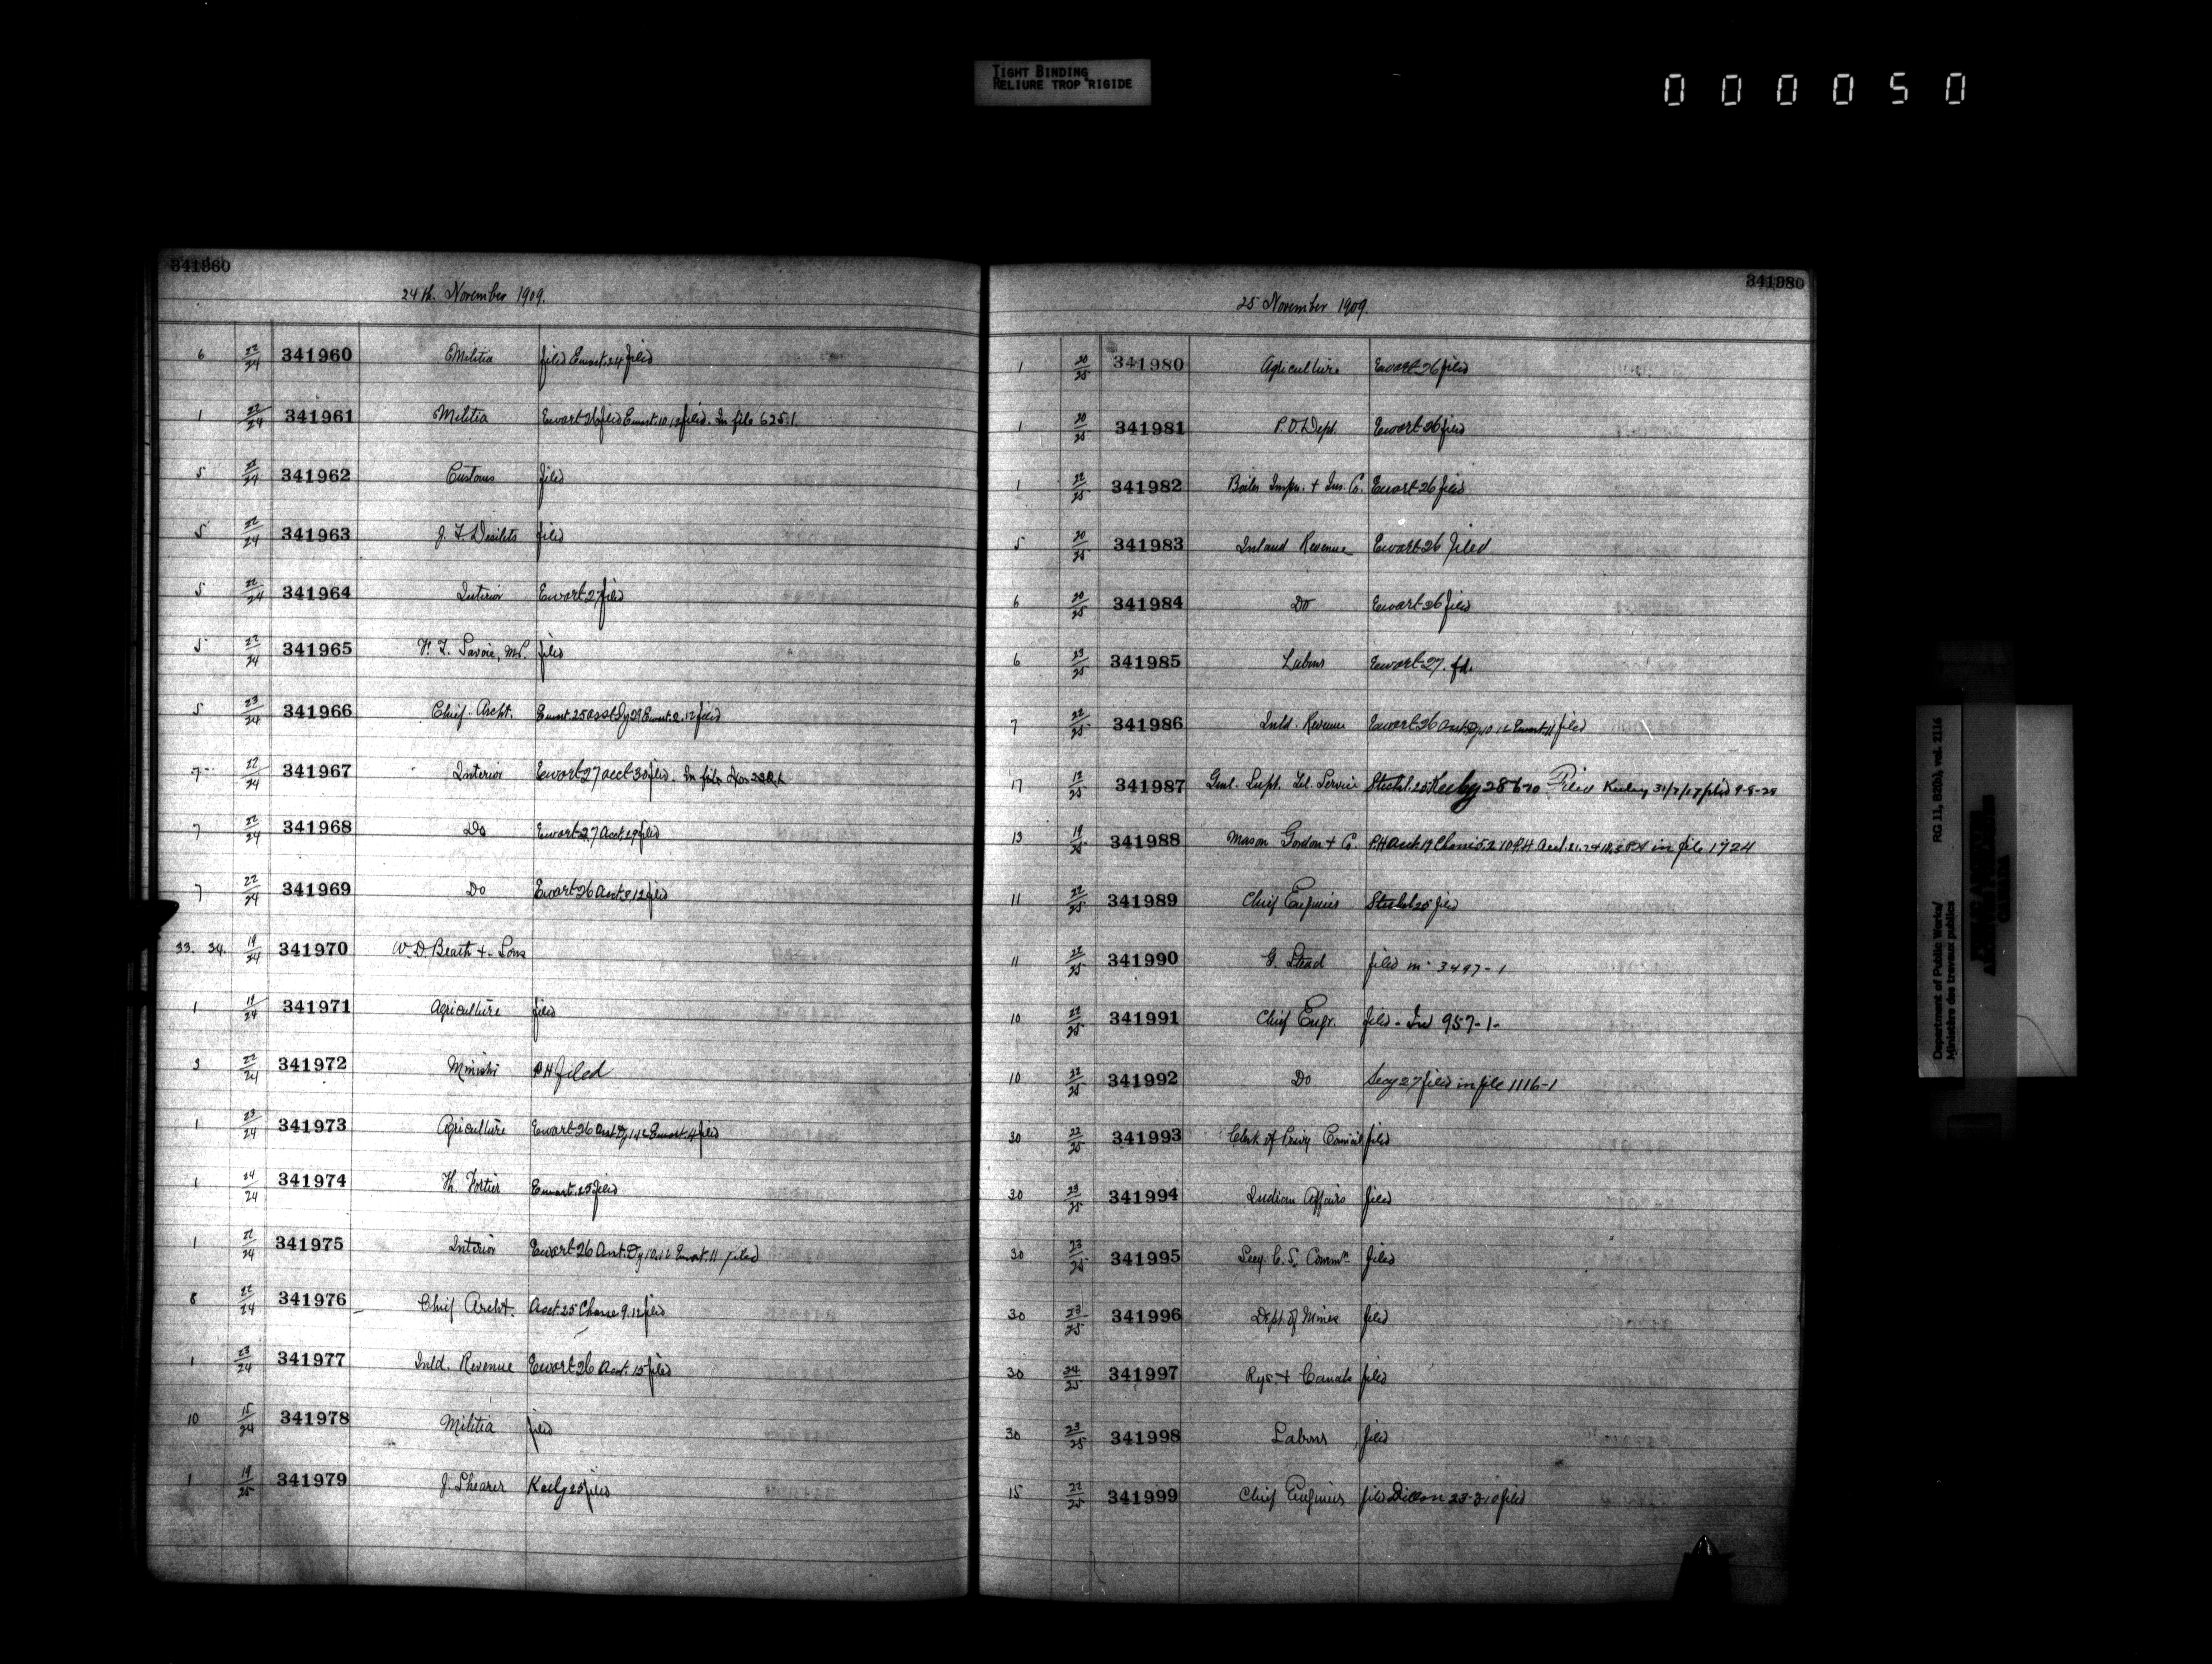 TIGHT BINDING
RELIURE TROP RIGIDE
000050
341960
24th. November 1909.
6 22/24 341960 Militia filed Ewart 24 filed
1 22/24 341961 Militia Ewart 26 filed Ewart 10/12 filed. In file 625.1.
5 22/24 341962 Customs filed
5 22/24 341963 filed
5 22/24 341964 Interior Ewart 27 filed
5 22/24 341965 Savoie, M.P. filed
5 23/24 341966 Chief Archt. Ewart 25 Ewart 2.12 filed
7 22/24 341967 Interior Ewart 27 acct 30 filed. In file
7 22/24 341968 Do Ewart 27 Acct. 29 filed
7 22/24 341969 Do Ewart 26 Acct. 3.12 filed
33. 34. 19/24 341970 W. D. Beath + Sons
1 19/24 341971 Agriculture filed
3 22/24 341972 P H filed
1 23/24 341973 Agriculture Ewart 26 Ewart 4 filed
1 24/24 341974 Th. Fortier Ewart 25 filed
1 22/24 341975 Interior Ewart 26 Ewart 11 filed
8 22/24 341976 Chief Archt. Acct. 25 9.12 filed
1 23/24 341977 Inld. Revenue Ewart 26 Acct. 15 filed
10 15/24 341978 Militia filed
1 19/25 341979 J. Shearer Keely 25 filed
341980
25 November 1909.
1 20/25 341980 Agriculture Ewart 26 filed
1 20/25 341981 P.O. Dept. Ewart 26 filed
1 22/25 341982 Boiler Inspn. + Ins. Co. Ewart 26 filed
5 20/25 341983 Inland Revenue Ewart 26 filed
6 20/25 341984 Do Ewart 26 filed
6 23/25 341985 Labour Ewart 27. fd.
7 22/25 341986 Inld. Revenue Ewart 26 Ewart 11 filed
17 12/25 341987 Genl. Supt. Tel. Service Filed filed 9-8-28
13 19/25 341988 Mason Gordon + Co. in file 1724
11 22/25 341989 Chief Engineer filed
11 22/25 341990 G. Stead filed in 3497-1
10 22/25 341991 Chief Engr. filed - In 957-1-
10 22/25 341992 Do Secy 27 filed in file 1116-1
30 22/25 341993 Clerk of Privy Council filed
30 23/25 341994 Indian Affairs filed
30 23/25 341995 Secy. C. S. Commn filed
30 23/25 341996 Dept. of Mines filed
30 24/25 341997 Rys. + Canals filed
30 23/25 341998 Labour filed
15 22/25 341999 Chief Engineer filed Dillon 23-3-10 filed
Department of Public Works/ RG 11, B2(b), vol. 2116
Ministère des travaux publics